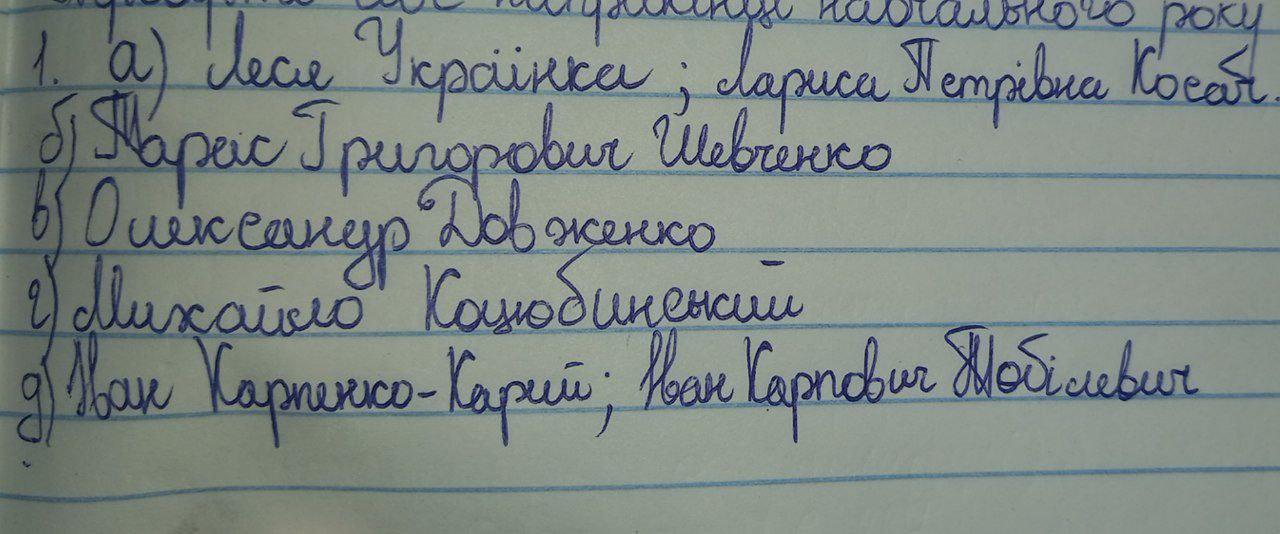 наприкінці навчального року
1. а) Леся Українка; Лариса Петрівна Косач.
б) Тарас Григорович Шевченко
в) Олександр Довженко
г) Михайло Коцюбинський
д) Іван Карпенко-Карий; Іван Карпович Тобілевич